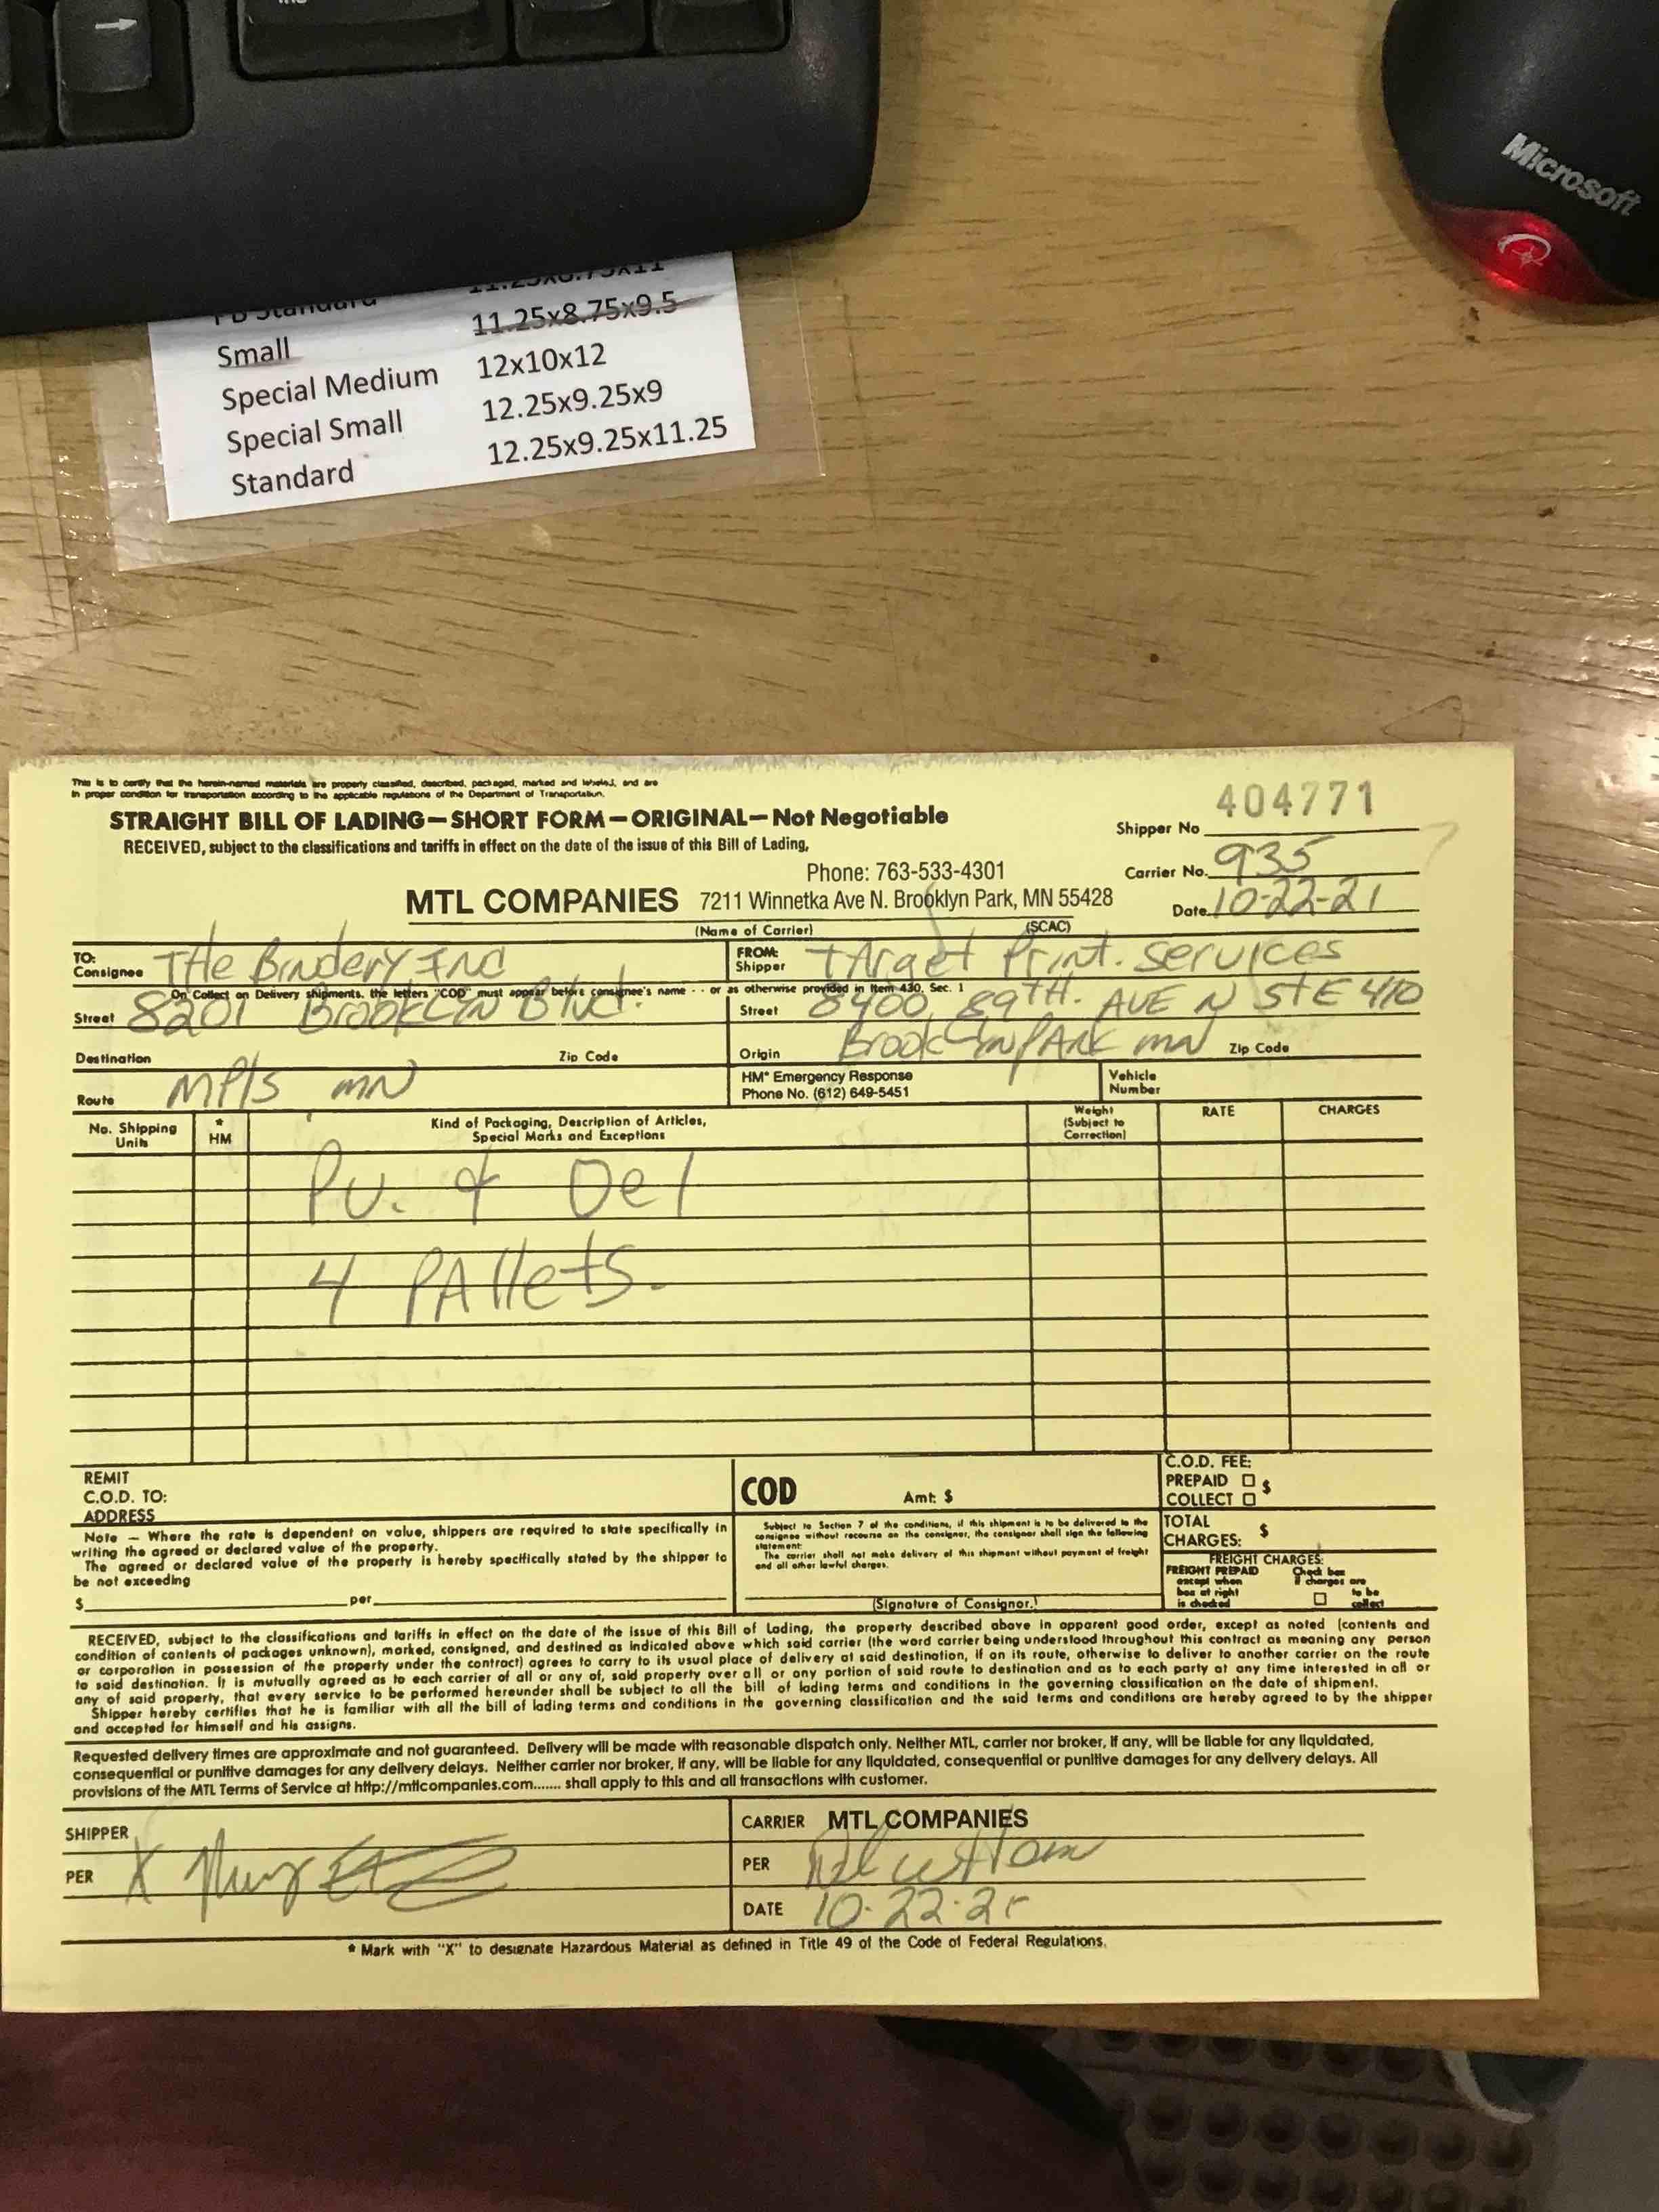 Microsoft
11.25x8.75x11
Standard
Small 11.25x8.75x9.5
Special Medium 12x10x12
Special Small 12.25x9.25x9
Standard 12.25x9.25x11.25
This is to certify that the herein-named materials are properly classified, described, packaged, marked and labeled, and are
in proper condition for transportation according to the applicable regulations of the Department of Transportation.
STRAIGHT BILL OF LADING—SHORT FORM—ORIGINAL—Not Negotiable
RECEIVED, subject to the classifications and tariffs in effect on the date of the issue of this Bill of Lading,
Shipper No 404771
Phone: 763-533-4301
Carrier No. 935
MTL COMPANIES 7211 Winnetka Ave N. Brooklyn Park, MN 55428
Date 10-22-21
(Name of Carrier) (SCAC)
TO: Consignee THe Bindery Inc
FROM: Shipper TArget Print. Services
On Collect on Delivery shipments, the letters "COD" must appear before consignee's name - - or as otherwise provided in Item 430, Sec. 1
Street 8201 Brooklyn Blvd.
Street 8400 89TH. AVE N StE 410
Destination Zip Code
Origin BrooklynPARK mN Zip Code
Route MPls mN
HM* Emergency Response
Phone No. (612) 649-5451
Vehicle
Number
No. Shipping
Units
*
HM
Kind of Packaging, Description of Articles,
Special Marks and Exceptions
Weight
(Subject to
Correction)
RATE
CHARGES
PU. & Del
4 PAllets.
REMIT
C.O.D. TO:
ADDRESS
COD Amt: $
C.O.D. FEE:
PREPAID $
COLLECT
Note — Where the rate is dependent on value, shippers are required to state specifically in
writing the agreed or declared value of the property.
The agreed or declared value of the property is hereby specifically stated by the shipper to
be not exceeding
$ per
Subject to Section 7 of the conditions, if this shipment is to be delivered to the
consignee without recourse on the consignor, the consignor shall sign the following
statement:
The carrier shall not make delivery of this shipment without payment of freight
and all other lawful charges.
(Signature of Consignor.)
TOTAL
CHARGES: $
FREIGHT CHARGES:
FREIGHT PREPAID
except when
box at right
is checked
Check box
if charges are
to be
collect
RECEIVED, subject to the classifications and tariffs in effect on the date of the issue of this Bill of Lading, the property described above in apparent good order, except as noted (contents and
condition of contents of packages unknown), marked, consigned, and destined as indicated above which said carrier (the word carrier being understood throughout this contract as meaning any person
or corporation in possession of the property under the contract) agrees to carry to its usual place of delivery at said destination, if on its route, otherwise to deliver to another carrier on the route
to said destination. It is mutually agreed as to each carrier of all or any of, said property over all or any portion of said route to destination and as to each party at any time interested in all or
any of said property, that every service to be performed hereunder shall be subject to all the bill of lading terms and conditions in the governing classification on the date of shipment.
Shipper hereby certifies that he is familiar with all the bill of lading terms and conditions in the governing classification and the said terms and conditions are hereby agreed to by the shipper
and accepted for himself and his assigns.
Requested delivery times are approximate and not guaranteed. Delivery will be made with reasonable dispatch only. Neither MTL, carrier nor broker, if any, will be liable for any liquidated,
consequential or punitive damages for any delivery delays. Neither carrier nor broker, if any, will be liable for any liquidated, consequential or punitive damages for any delivery delays. All
provisions of the MTL Terms of Service at http://mtlcompanies.com....... shall apply to this and all transactions with customer.
SHIPPER
PER X
CARRIER MTL COMPANIES
PER
DATE 10-22-21
* Mark with "X" to designate Hazardous Material as defined in Title 49 of the Code of Federal Regulations.